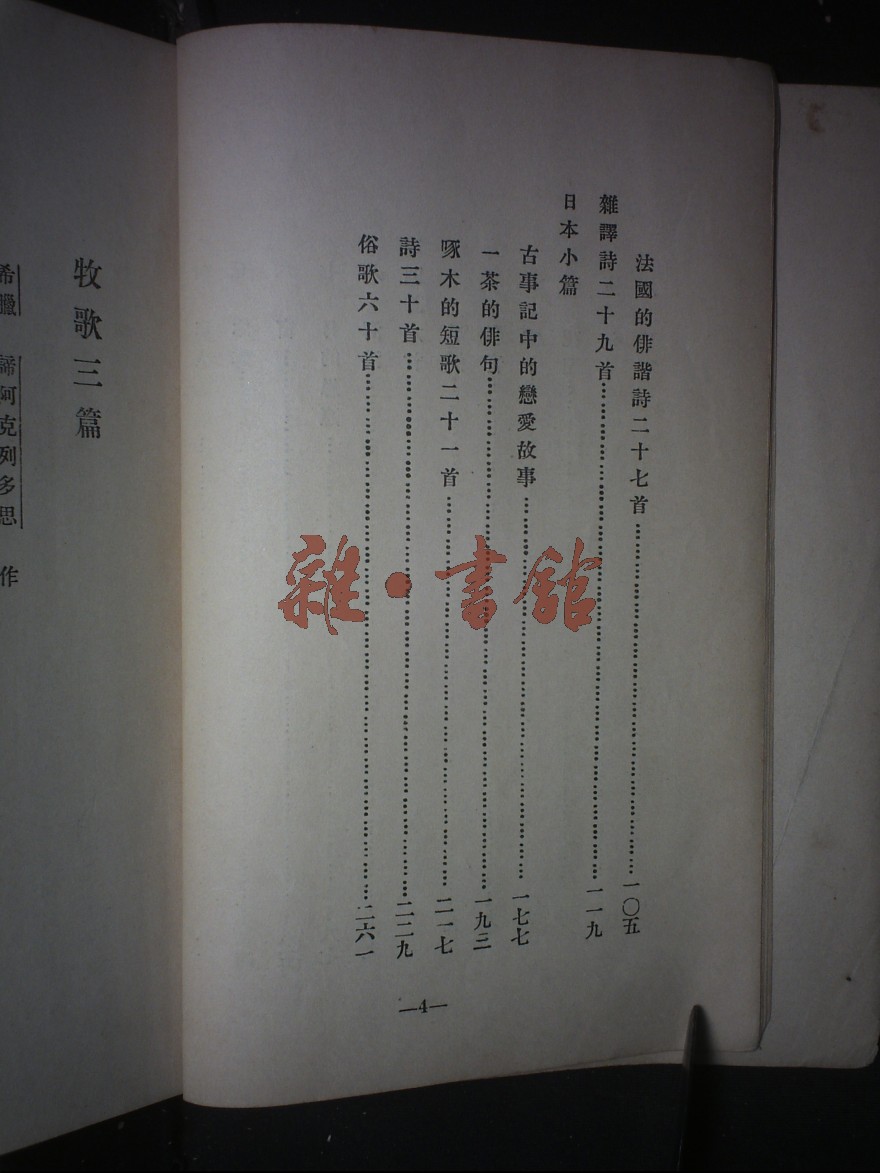 法國的俳諧詩二十七首……一〇五
雜譯詩二十九首……一一九
日本小篇
古事記中的戀愛故事……一七七
一茶的俳句……一九三
啄木的短歌二十一首……二一七
詩三十首……二二九
俗歌六十首……二六一
—4—
雜·書館
牧歌三篇
希臘 諦阿克列多思 作